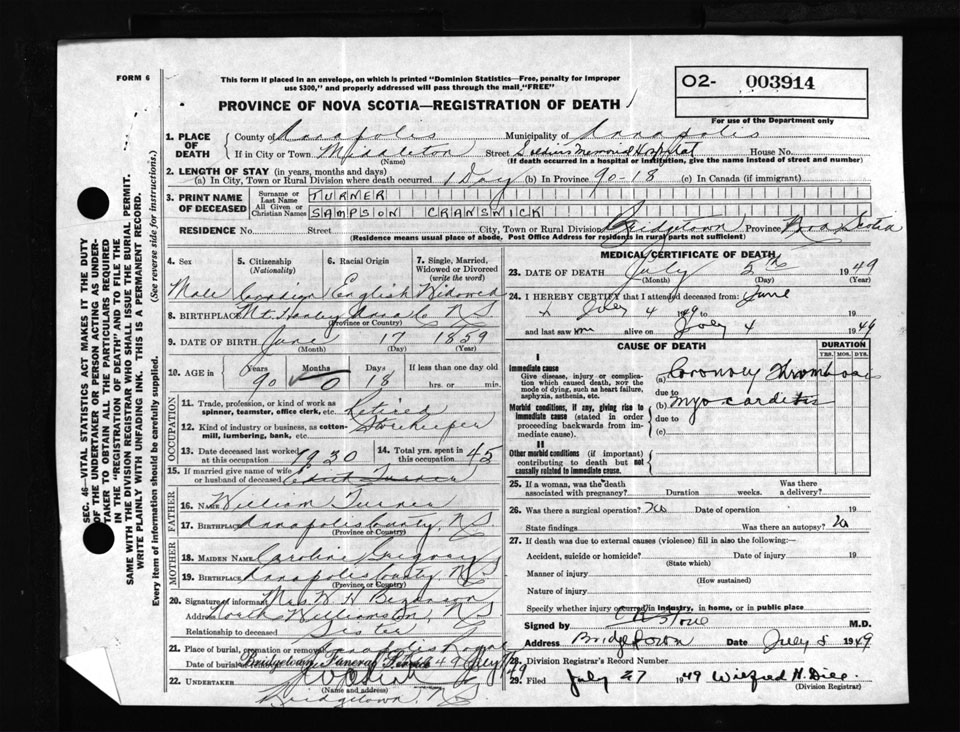 FORM 6
This form if placed in an envelope, on which is printed "Dominion Statistics—Free, penalty for improper
use $300," and properly addressed will pass through the mail "FREE"
O2- 003914
PROVINCE OF NOVA SCOTIA—REGISTRATION OF DEATH
For use of the Department only
SEC. 46—VITAL STATISTICS ACT MAKES IT THE DUTY
OF THE UNDERTAKER OR PERSON ACTING AS UNDER-
TAKER TO OBTAIN ALL THE PARTICULARS REQUIRED
IN THE "REGISTRATION OF DEATH" AND TO FILE THE
SAME WITH THE DIVISION REGISTRAR WHO SHALL ISSUE THE BURIAL PERMIT.
WRITE PLAINLY WITH UNFADING INK. THIS IS A PERMANENT RECORD.
Every item of information should be carefully supplied. (See reverse side for instructions.)
1. PLACE OF DEATH
County of Annapolis Municipality of Annapolis
If in City or Town Middleton Street Soldiers Memorial Hospital House No.
(Name) (If death occurred in a hospital or institution, give the name instead of street and number)
2. LENGTH OF STAY (in years, months and days)
(a) In City, Town or Rural Division where death occurred 1 Day (b) In Province 90-18 (c) In Canada (if immigrant)
3. PRINT NAME OF DECEASED
Surname or Last Name TURNER
All Given or Christian Names SAMPSON CRANSWICK
RESIDENCE No. Street City, Town or Rural Division Bridgetown Province Nova Scotia
(Residence means usual place of abode. Post Office Address for residents in rural parts not sufficient)
4. Sex 5. Citizenship (Nationality) 6. Racial Origin 7. Single, Married, Widowed or Divorced (write the word)
Male Canadian English Widowed
8. BIRTHPLACE Mt. Hanley Anna Co N.S.
(Province or Country)
9. DATE OF BIRTH June 17 1859
(Month) (Day) (Year)
10. AGE in Years 90 Months 0 Days 18 If less than one day old
hrs. or min.
OCCUPATION
11. Trade, profession, or kind of work as
spinner, teamster, office clerk, etc. retired
12. Kind of industry or business, as cotton-
mill, lumbering, bank, etc. Storekeeper
13. Date deceased last worked at this occupation 1930 14. Total yrs. spent in this occupation 45
15. If married give name of wife
or husband of deceased Turner
FATHER
16. Name William Turner
17. Birthplace Annapolis County, N.S.
(Province or Country)
MOTHER
18. Maiden Name Caroline Gregory
19. Birthplace Annapolis County, N.S.
(Province or Country)
20. Signature of informant Mrs. W. H.
Address North Williamston, N.S.
Relationship to deceased Sister
21. Place of burial, cremation or removal Annapolis Royal
Date of burial July 49
Bridgetown Funeral
22. UNDERTAKER
(Name and address)
Bridgetown, N.S.
MEDICAL CERTIFICATE OF DEATH
23. DATE OF DEATH July 5th 1949
(Month) (Day) (Year)
24. I HEREBY CERTIFY that I attended deceased from: June
July 4 1949
and last saw him alive on July 4 1949
CAUSE OF DEATH DURATION
YRS. MOS. DYS.
I
Immediate cause
Give disease, injury or complica-
tion which caused death, nor the
mode of dying, such as heart failure,
asphyxia, asthenia, etc.
(a) Coronary Thrombosis
due to
Morbid conditions, if any, giving rise to
immediate cause (stated in order
proceeding backwards from im-
mediate cause).
(b) Myocarditis
due to
(c)
II
Other morbid conditions (if important)
contributing to death but not
causally related to immediate cause.
25. If a woman, was the death
associated with pregnancy? Duration weeks. Was there a delivery?
26. Was there a surgical operation? No Date of operation 19
State findings Was there an autopsy? No
27. If death was due to external causes (violence) fill in also the following:—
Accident, suicide or homicide? Date of injury 19
(State which)
Manner of injury
(How sustained)
Nature of injury
Specify whether injury occurred in industry, in home, or in public place
Signed by M.D.
Address Bridgetown Date July 5 1949
28. Division Registrar's Record Number
29. Filed July 27 1949 Wilfred H. Dill
(Division Registrar)